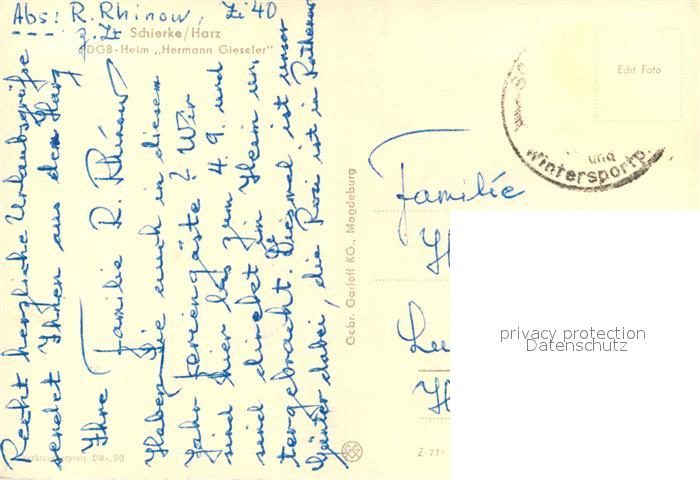 Abs: R. Rhinow, Zi 40
z. Zt Schierke/Harz
FDGB-Heim „Hermann Gieseler"
Recht herzliche Urlaubsgrüße
sendet Ihnen aus dem Harz
Ihre Familie R. Rhinow
Haben Sie auch in diesem
Jahr Feriengäste? Wir
sind hier bis zum 4.9. und
sind direkt im Heim un
tergebracht. Diesmal ist unser
Günter dabei, die Rosi ist in Rathenow
erbraucherpreis DM -,20
Gebr. Garloff KG., Magdeburg
Z 771
Echt Foto
und
Wintersportp.
Familie
H
Lu
H
privacy protection
Datenschutz